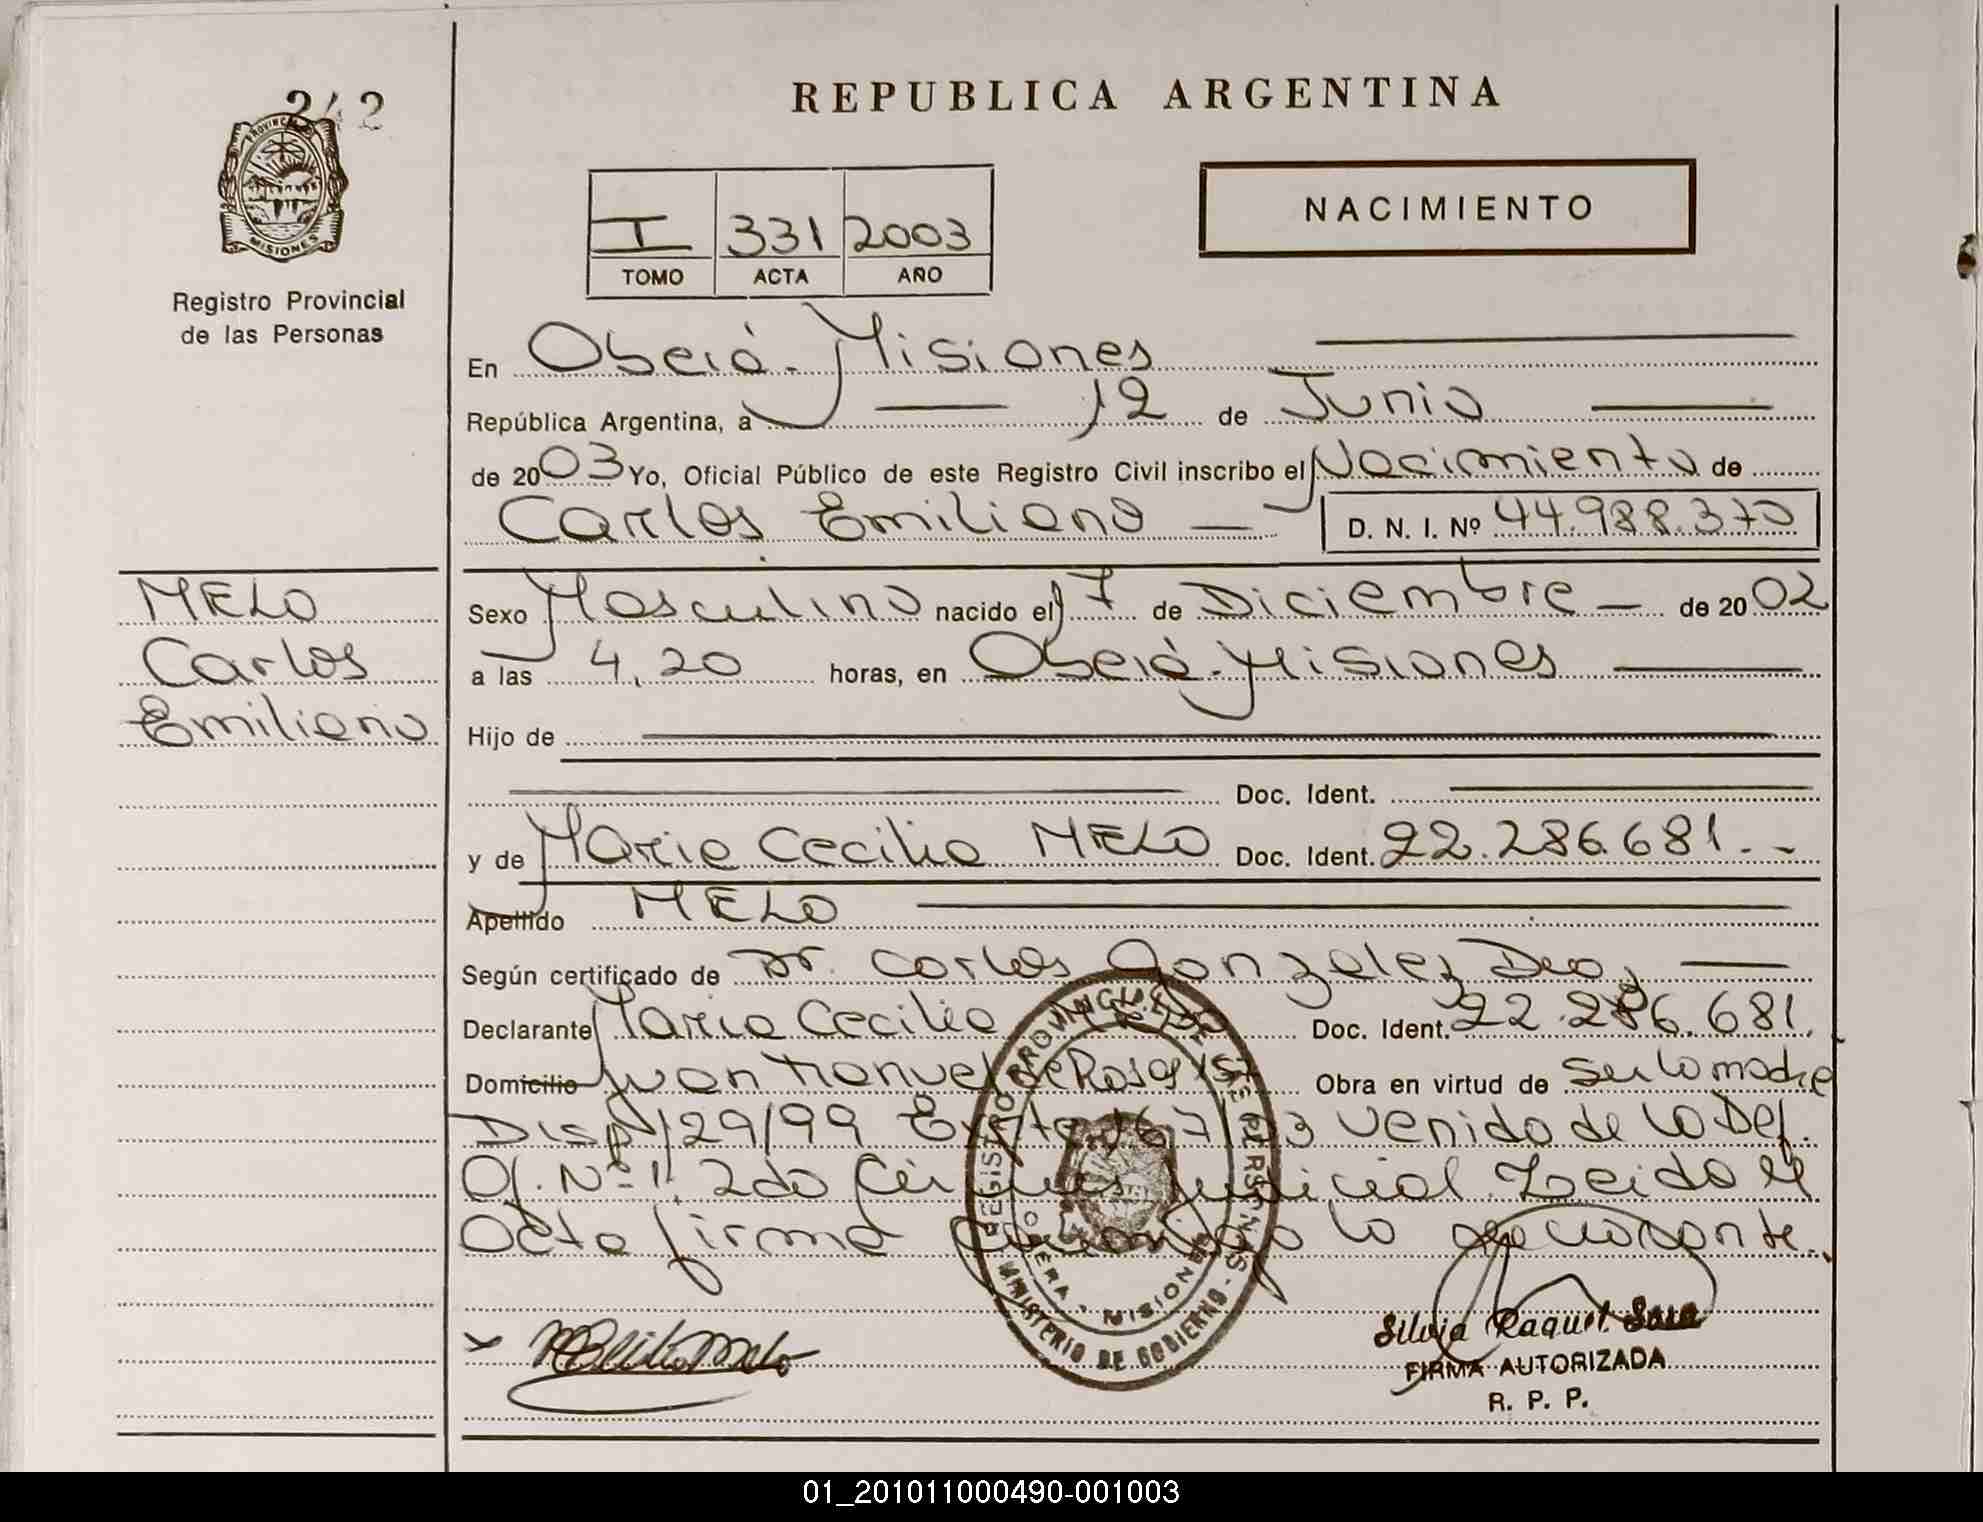 242
PROVINCIA DE
MISIONES
Registro Provincial
de las Personas
REPUBLICA ARGENTINA
I 331 2003
TOMO ACTA AÑO
NACIMIENTO
En Oberá - Misiones
República Argentina, a 12 de Junio
de 2003 Yo, Oficial Público de este Registro Civil inscribo el Nacimiento de
Carlos Emiliano D. N. I. Nº 44.988.370
MELO
Carlos
Emiliano
Sexo Masculino nacido el 7 de Diciembre de 2002
a las 4,20 horas, en Oberá - Misiones
Hijo de
Doc. Ident.
y de Maria Cecilia MELO Doc. Ident. 22.286.681.-
Apellido MELO
Según certificado de Dr. Carlos Gonzalez
Declarante Maria Cecilia Doc. Ident. 22.286.681.
Domicilio Juan Manuel de Rosas Obra en virtud de ser la madre
Disp. 129/99 167/03 venido de la Def.
Of. Nº 1, 2da Judicial. Leida el
acta firma la declarante.
REGISTRO PROVINCIAL DE LAS PERSONAS
MINISTERIO DE GOBIERNO
OBERA - MISIONES
Silvia Raquel
FIRMA AUTORIZADA
R. P. P.
01_201011000490-001003